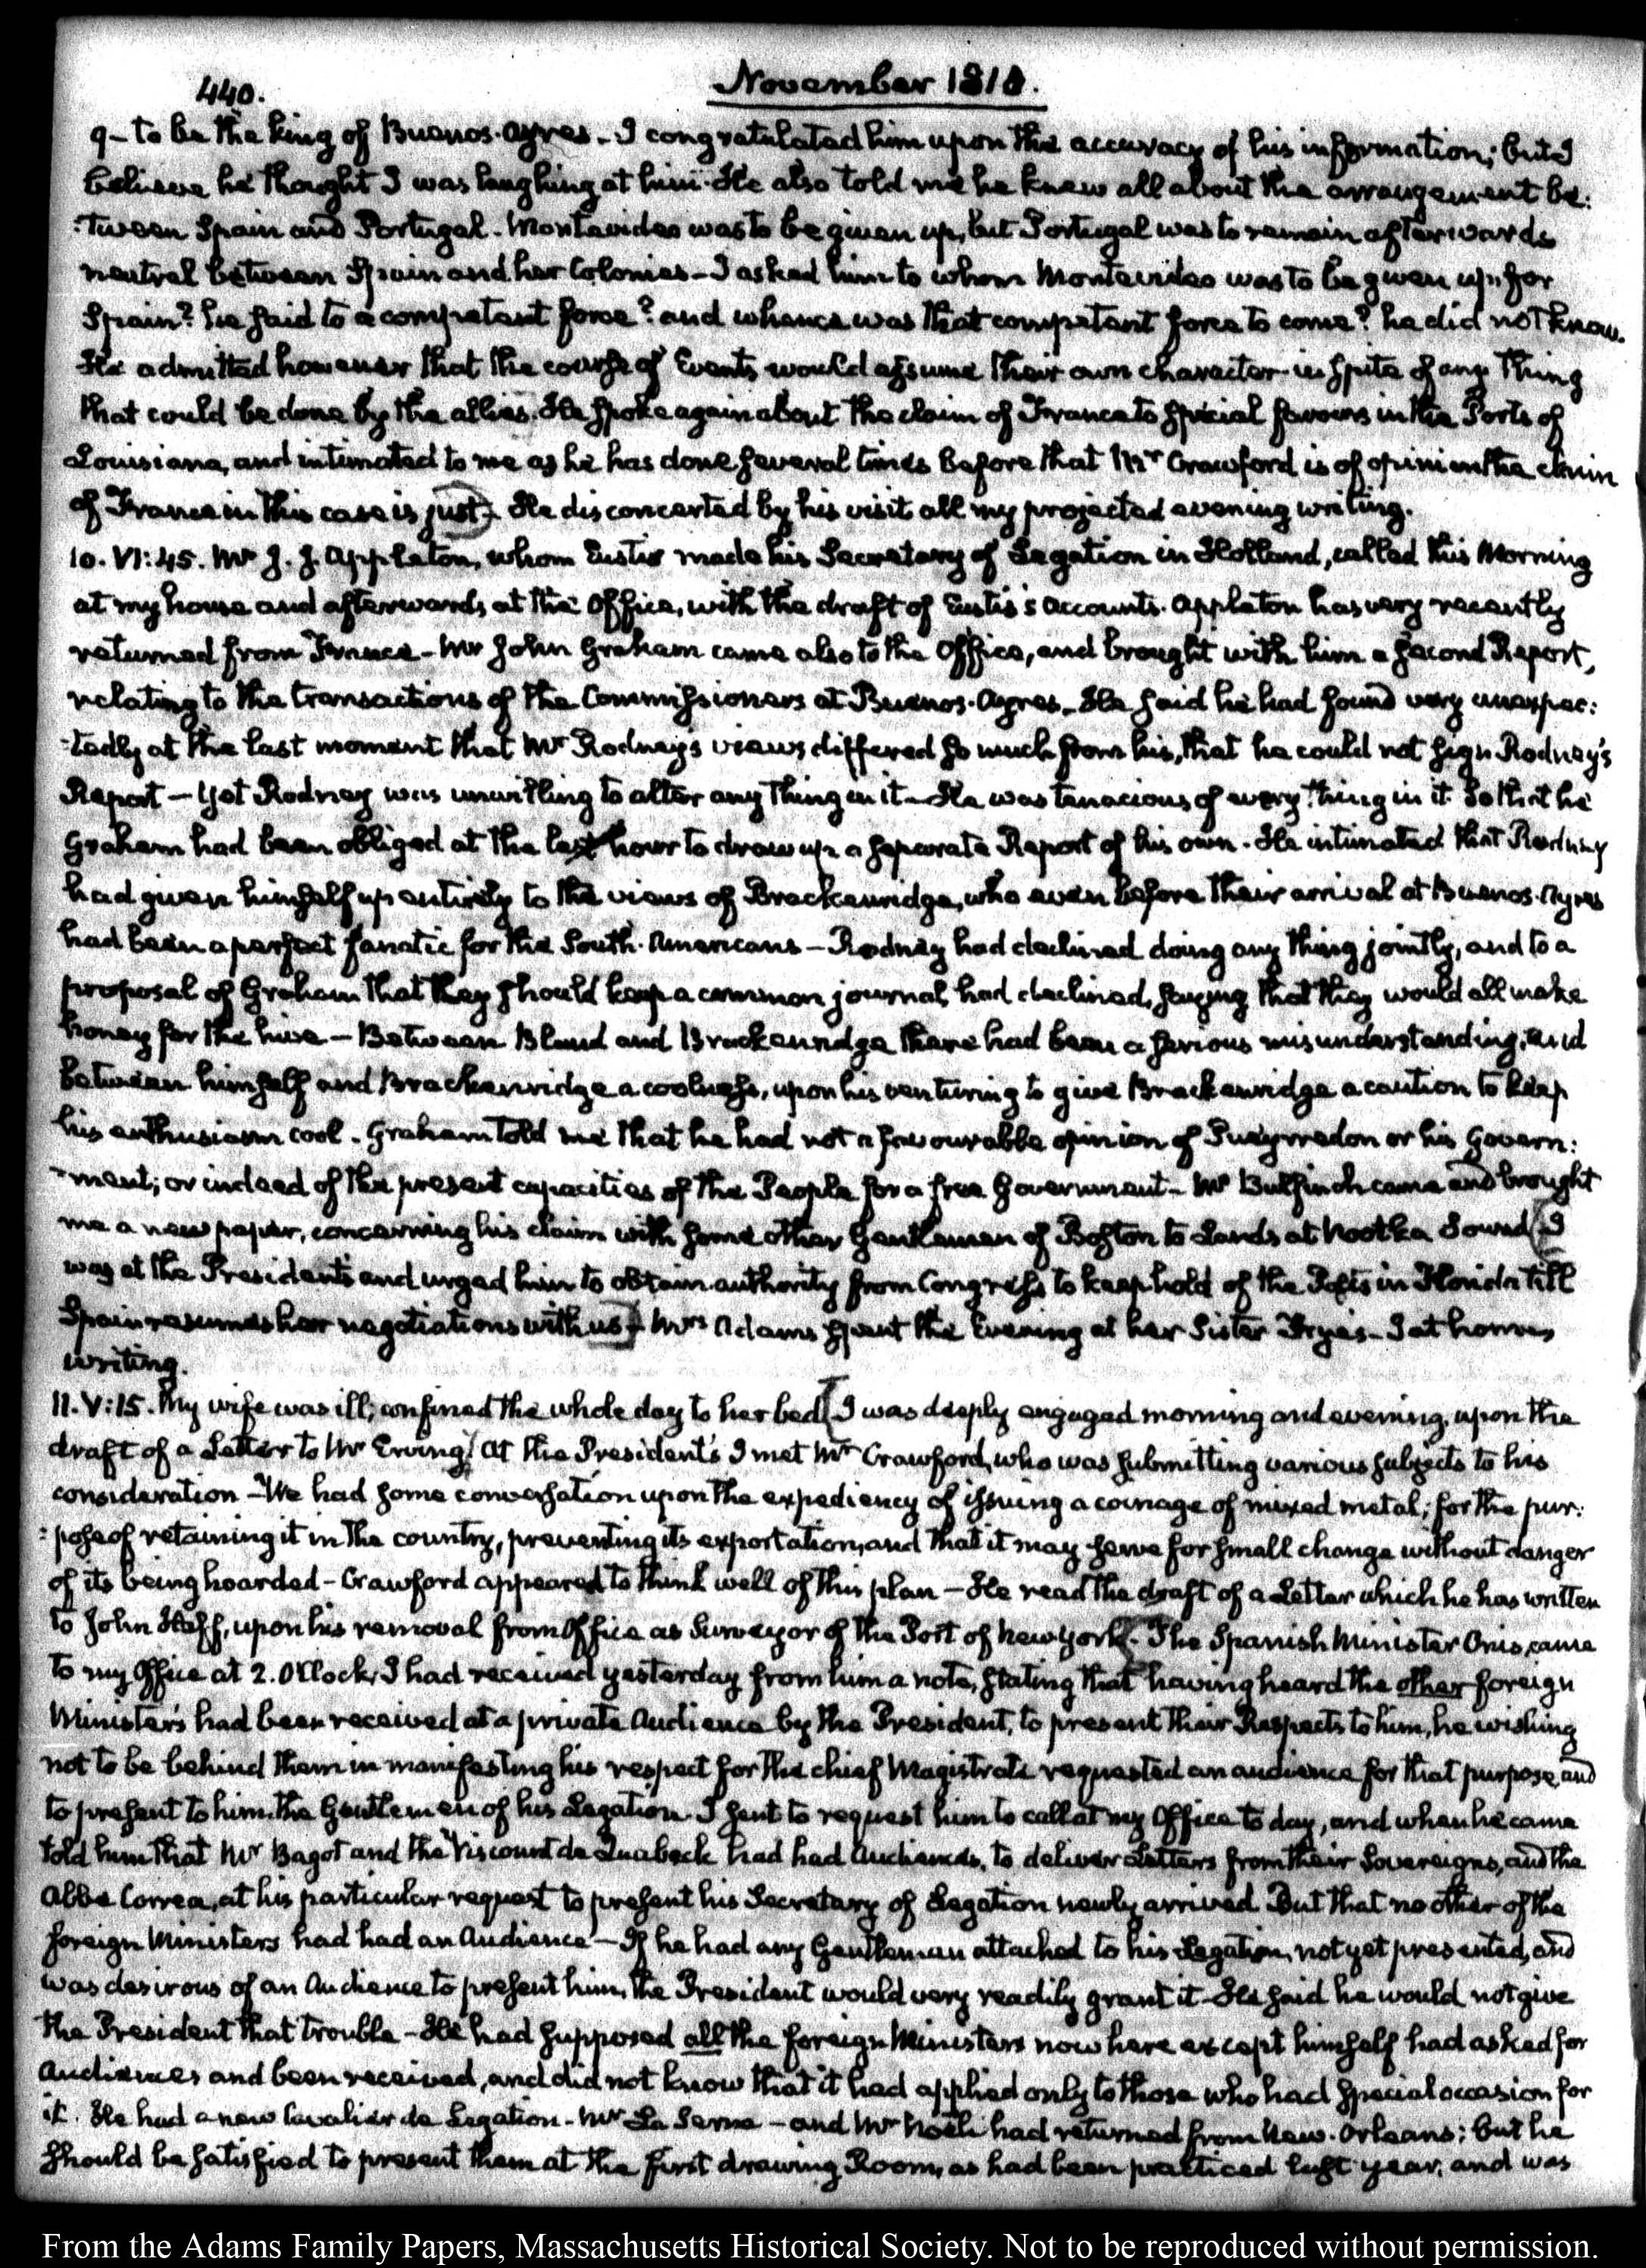 440.
November 1818.
9- to be the king of Buenos-Ayres - I congratulated him upon the accuracy of his information; but I
believe he thought I was laughing at him. He also told me he knew all about the arrangement be:
:tween Spain and Portugal. Montevideo was to be given up, but Portugal was to remain afterwards
neutral between Spain and her Colonies - I asked him to whom Montevideo was to be given up for
Spain? he said to a competent force? and whence was that competent force to come? he did not know.
He admitted however that the course of Events would assume their own character in spite of any thing
that could be done by the allies. He spoke again about the claim of France to special favours in the Ports of
Louisiana, and intimated to me as he has done several times before that Mr Crawford is of opinion the claim
of France in this case is just. He disconcerted by his visit all my projected evening writing.
10. VI:45. Mr J. J. Appleton, whom Eustis made his Secretary of Legation in Holland, called this Morning
at my house and afterwards at the Office, with the draft of Eustis's Accounts. Appleton has very recently
returned from France - Mr John Graham came also to the Office, and brought with him a second Report,
relating to the transactions of the Commissioners at Buenos-Ayres. He said he had found very unexpec:
:tedly at the last moment that Mr Rodney's views differed so much from his, that he could not sign Rodney's
Report - Yet Rodney was unwilling to alter any thing in it - He was tenacious of every thing in it. So that he
Graham had been obliged at the last hour to draw up a separate Report of his own. He intimated that Rodney
had given himself up entirely to the views of Brackenridge, who even before their arrival at Buenos-Ayres
had been a perfect fanatic for the South-Americans - Rodney had declined doing any thing jointly, and to a
proposal of Graham that they should keep a common journal, had declined, saying that they would all make
honey for the hive - Between Bland and Brackenridge there had been a serious misunderstanding, and
between himself and Brackenridge a coolness, upon his venturing to give Brackenridge a caution to keep
his enthusiasm cool. Graham told me that he had not a favourable opinion of Pueyrredon or his Govern:
:ment; or indeed of the present capacities of the People for a free Government - Mr Bulfinch came and brought
me a new paper, concerning his claim with some other Gentlemen of Boston to Lands at Nootka Sound [I
was at the President's and urged him to obtain authority from Congress to keep hold of the Posts in Florida till
Spain resumes her negotiations with us] - Mrs Adams spent the Evening at her Sister Frye's - I at home,
writing.
11. V:15. My wife was ill; confined the whole day to her bed [I was deeply engaged morning and evening, upon the
draft of a Letter to Mr Erving] At the President's I met Mr Crawford, who was submitting various subjects to his
consideration - We had some conversation upon the expediency of issuing a coinage of mixed metal; for the pur:
:pose of retaining it in the country, preventing its exportation, and that it may serve for small change without danger
of its being hoarded - Crawford appeared to think well of this plan - He read the draft of a Letter which he has written
to John Haff, upon his removal from Office as Surveyor of the Port of New York. The Spanish Minister Onis, came
to my Office at 2. O'Clock, I had received yesterday from him a note, stating that having heard the other foreign
Ministers had been received at a private Audience by the President, to present their Respects to him, he wishing
not to be behind them in manifesting his respect for the chief Magistrate requested an audience for that purpose, and
to present to him the Gentlemen of his Legation. I sent to request him to call at my Office to day, and when he came
told him that Mr Bagot and the Viscount de Quabeck had had Audiences, to deliver Letters from their Sovereigns, and the
Abbe Correa, at his particular request to present his Secretary of Legation newly arrived. But that no other of the
foreign Ministers had had an Audience - If he had any Gentleman attached to his Legation, not yet presented, and
was desirous of an Audience to present him, the President would very readily grant it - He said he would not give
the President that trouble - He had supposed all the foreign Ministers now here except himself had asked for
Audiences and been received, and did not know that it had applied only to those who had special occasion for
it. He had a new Cavalier de Legation - Mr La Serna - and Mr Noeli had returned from New-Orleans; but he
should be satisfied to present them at the first drawing Room, as had been practiced last year, and was
From the Adams Family Papers, Massachusetts Historical Society. Not to be reproduced without permission.